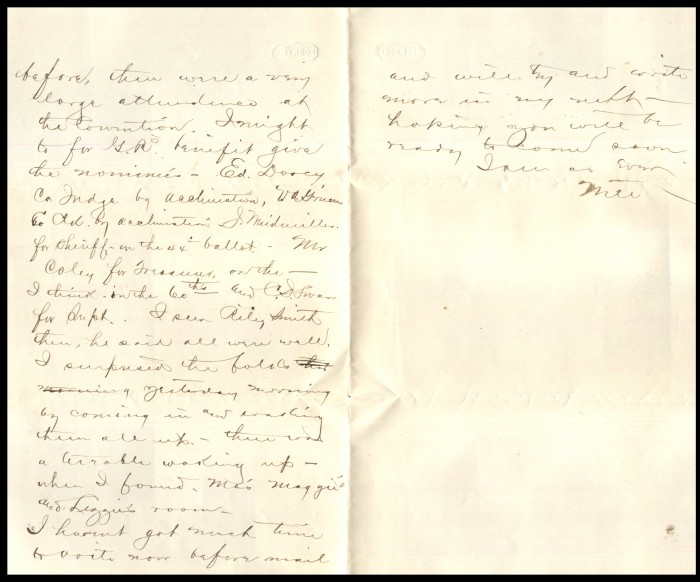 before, then were a very
large attendence at
the Convention. I might
to for G.R. benefit give
the nominies - Ed. Doocy
Co Judge by acclimation,
Co Atd. by acclimation J.
for Sheriff - on the 44th ballot - Mr
Coley for Treasurer, on the -
I think on the 60ths and C.S. Swan
for Supt. . I seen Riley Smith
then, he said all were well.
I surprised the folks this
morning yesterday morning
by coming in and waking
them all up. - there was
a terrable waking up -
when I found Mc's Maggie
and Lizzie's room -
I havent got much time
to write now before mail
and will try and write
more in my next -
hoping you will be
ready to come soon
I am as Ever